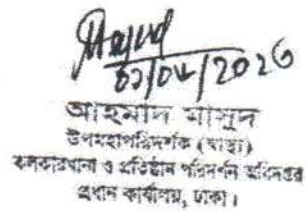 02/04/2026
আহমাদ মাসুদ
উপমহাপরিদর্শক (স্বাস্থ্য)
কলকারখানা ও প্রতিষ্ঠান পরিদর্শন অধিদপ্তর
প্রধান কার্যালয়, ঢাকা।